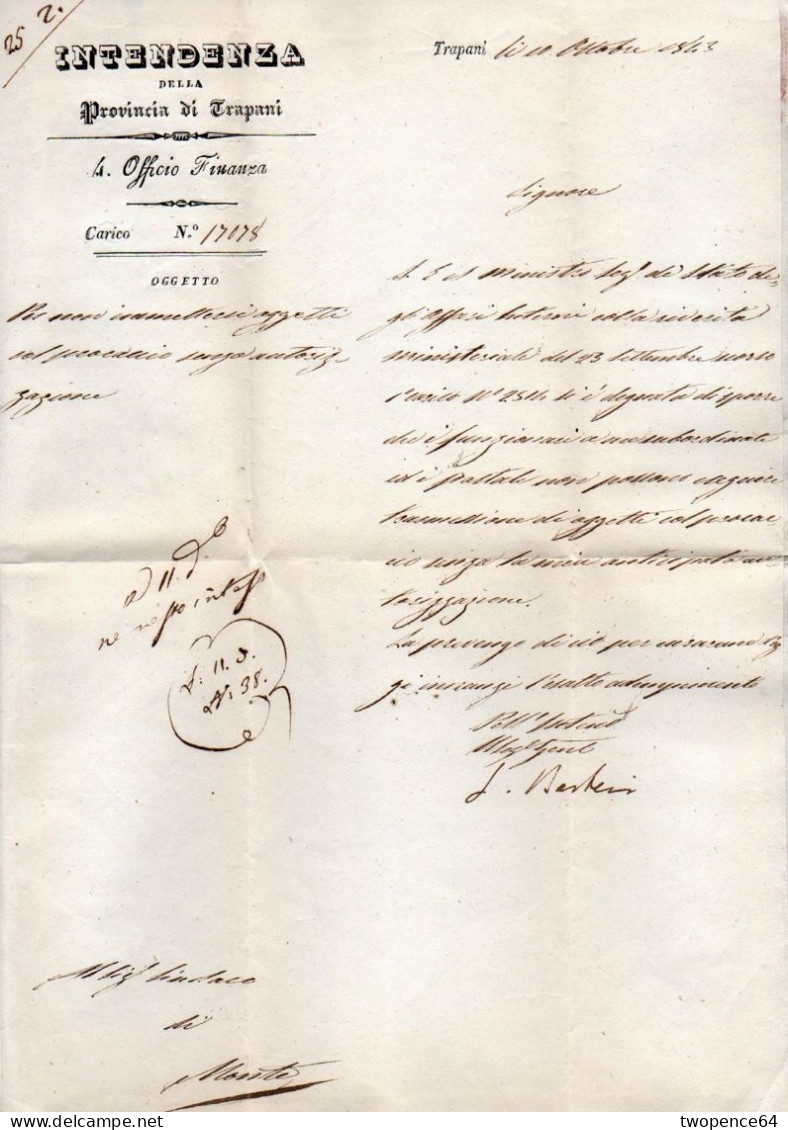 25 2.
INTENDENZA
DELLA
Provincia di Trapani
4. Officio Finanza
Carico N.º 17078
OGGETTO
Per non immettersi oggetti
col procaccio senza autoriz-
zazione
Trapani li 10 Ottobre 1843
Signore
S. E. il Ministro Seg.º di Stato de-
gli Affari Interni colla riverita
ministeriale del 23 Settembre
carico Nº 2514 si è degnata disporre
che i funzionari a me subordinati
ed i postali non possono eseguire
trasmessione di oggetti col procac-
cio senza la mia anticipata au-
torizzazione.
La prevengo di ciò per curarne
gi innanzi l'esatto adempimento
Per l'Intend.e
Il Seg.º Gen.le
a 11. d.º
S: 11. d.
N: 38.
Al Sig.r Sindaco
di
Monte
twopence64